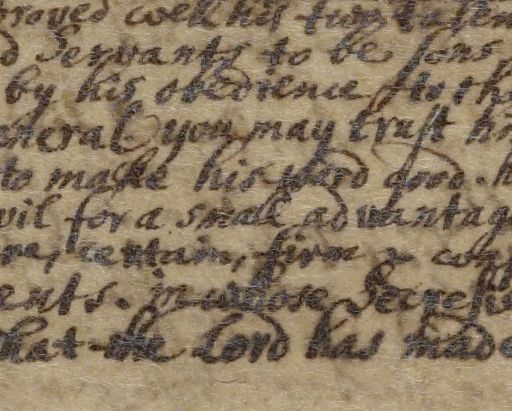 proved well his two talen
d Servants to be sons
by his obedience further
eneral you may trust h
to make his word good. h
vil for a small advantag
re, certain, firm & con
ents. in whose Secret
hat the Lord has mad